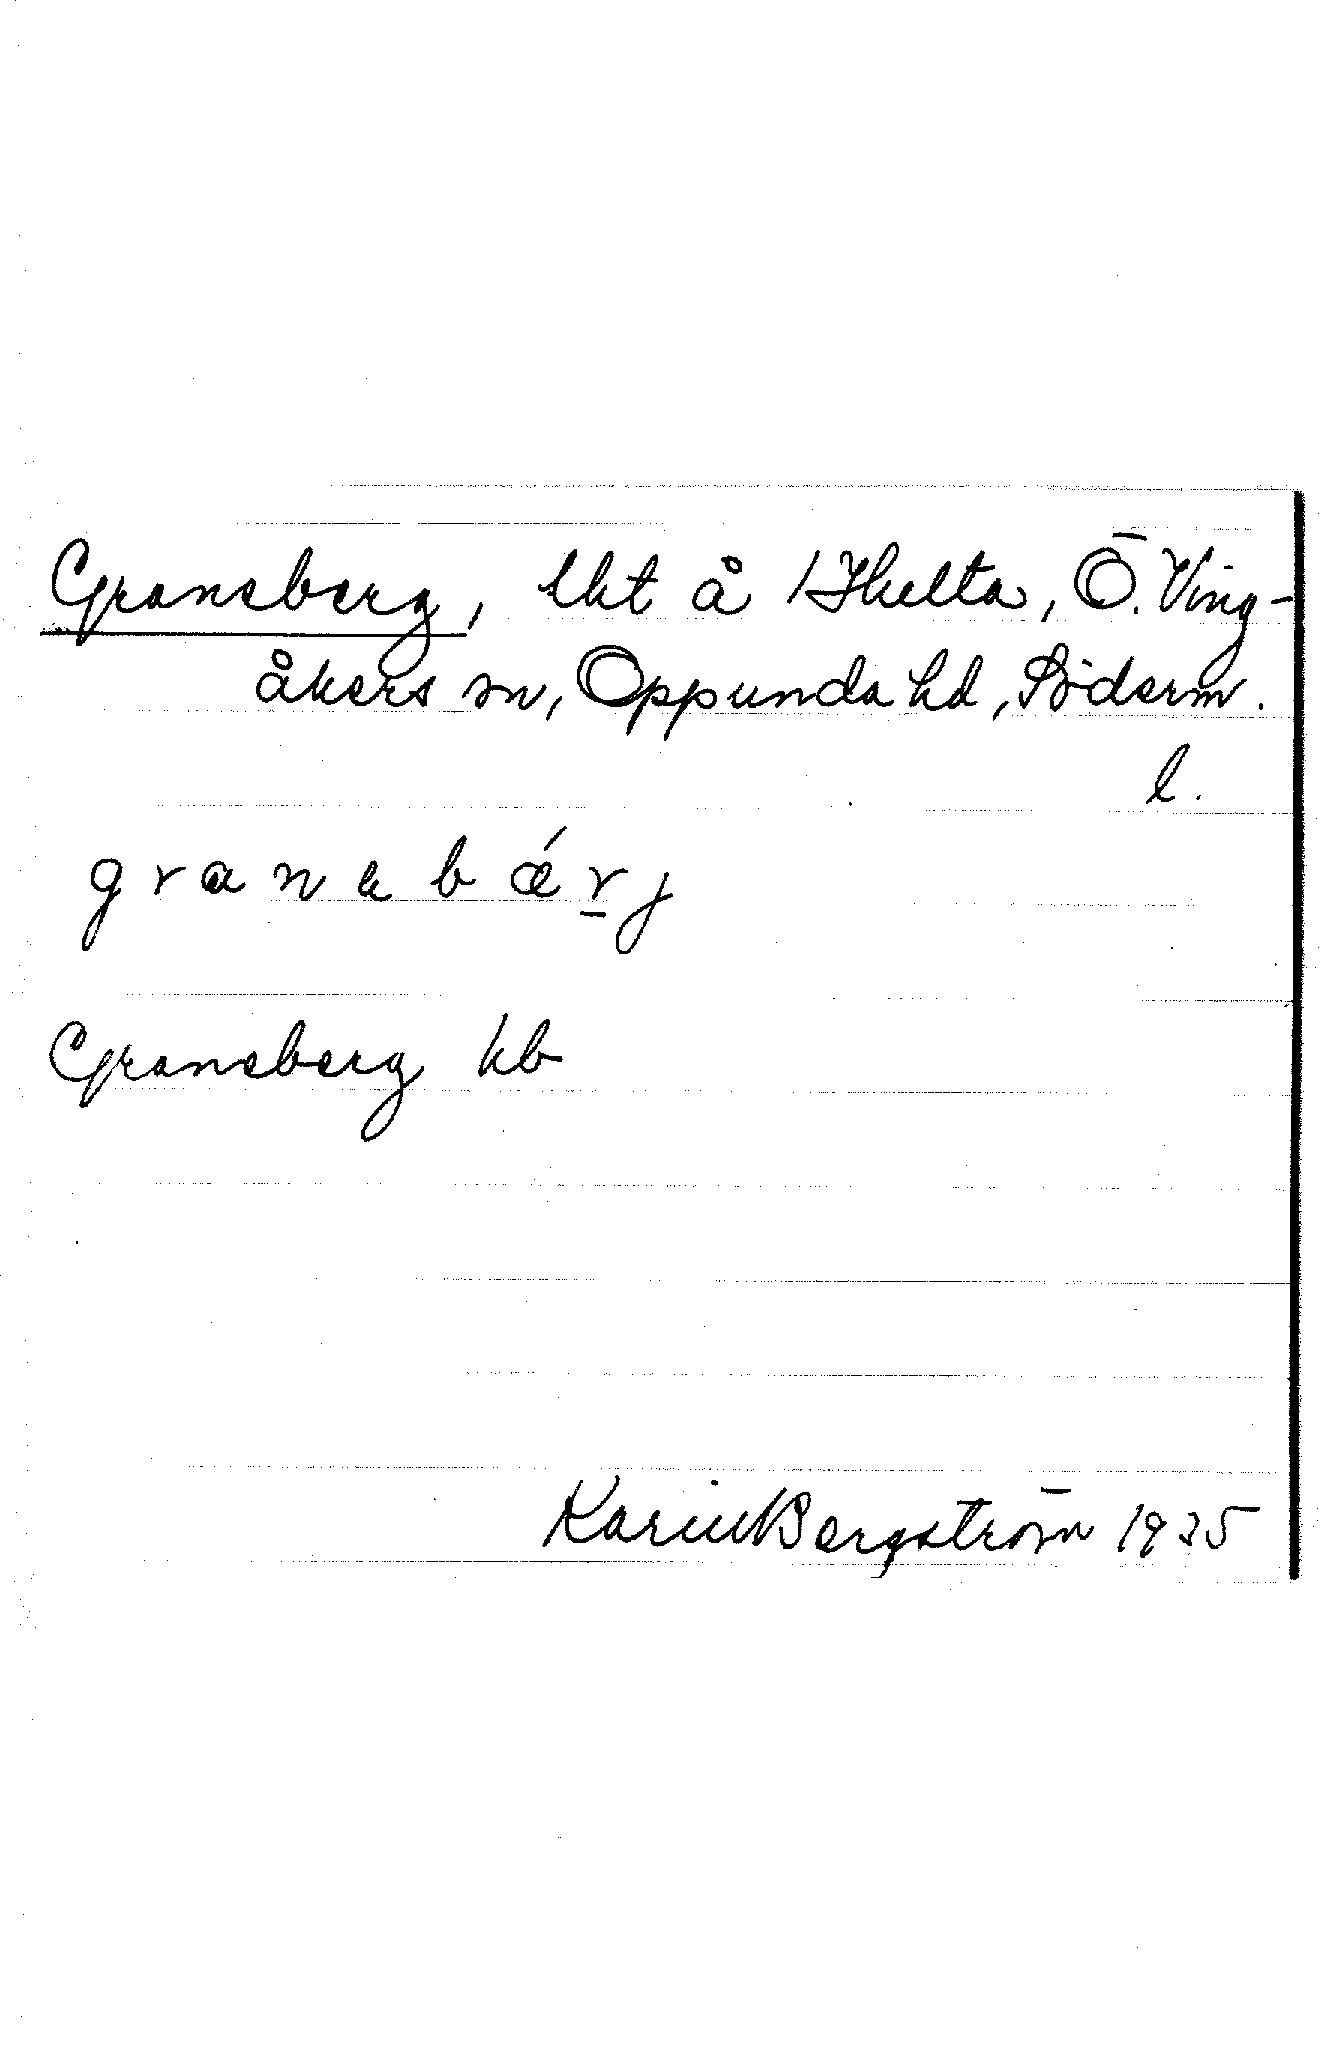 Graneberg, lht å Hulta, Ö. Ving-
åkers sn, Oppunda hd, Söderm.
l.
granabǽrj
Graneberg kb
Karin Bergström 1935